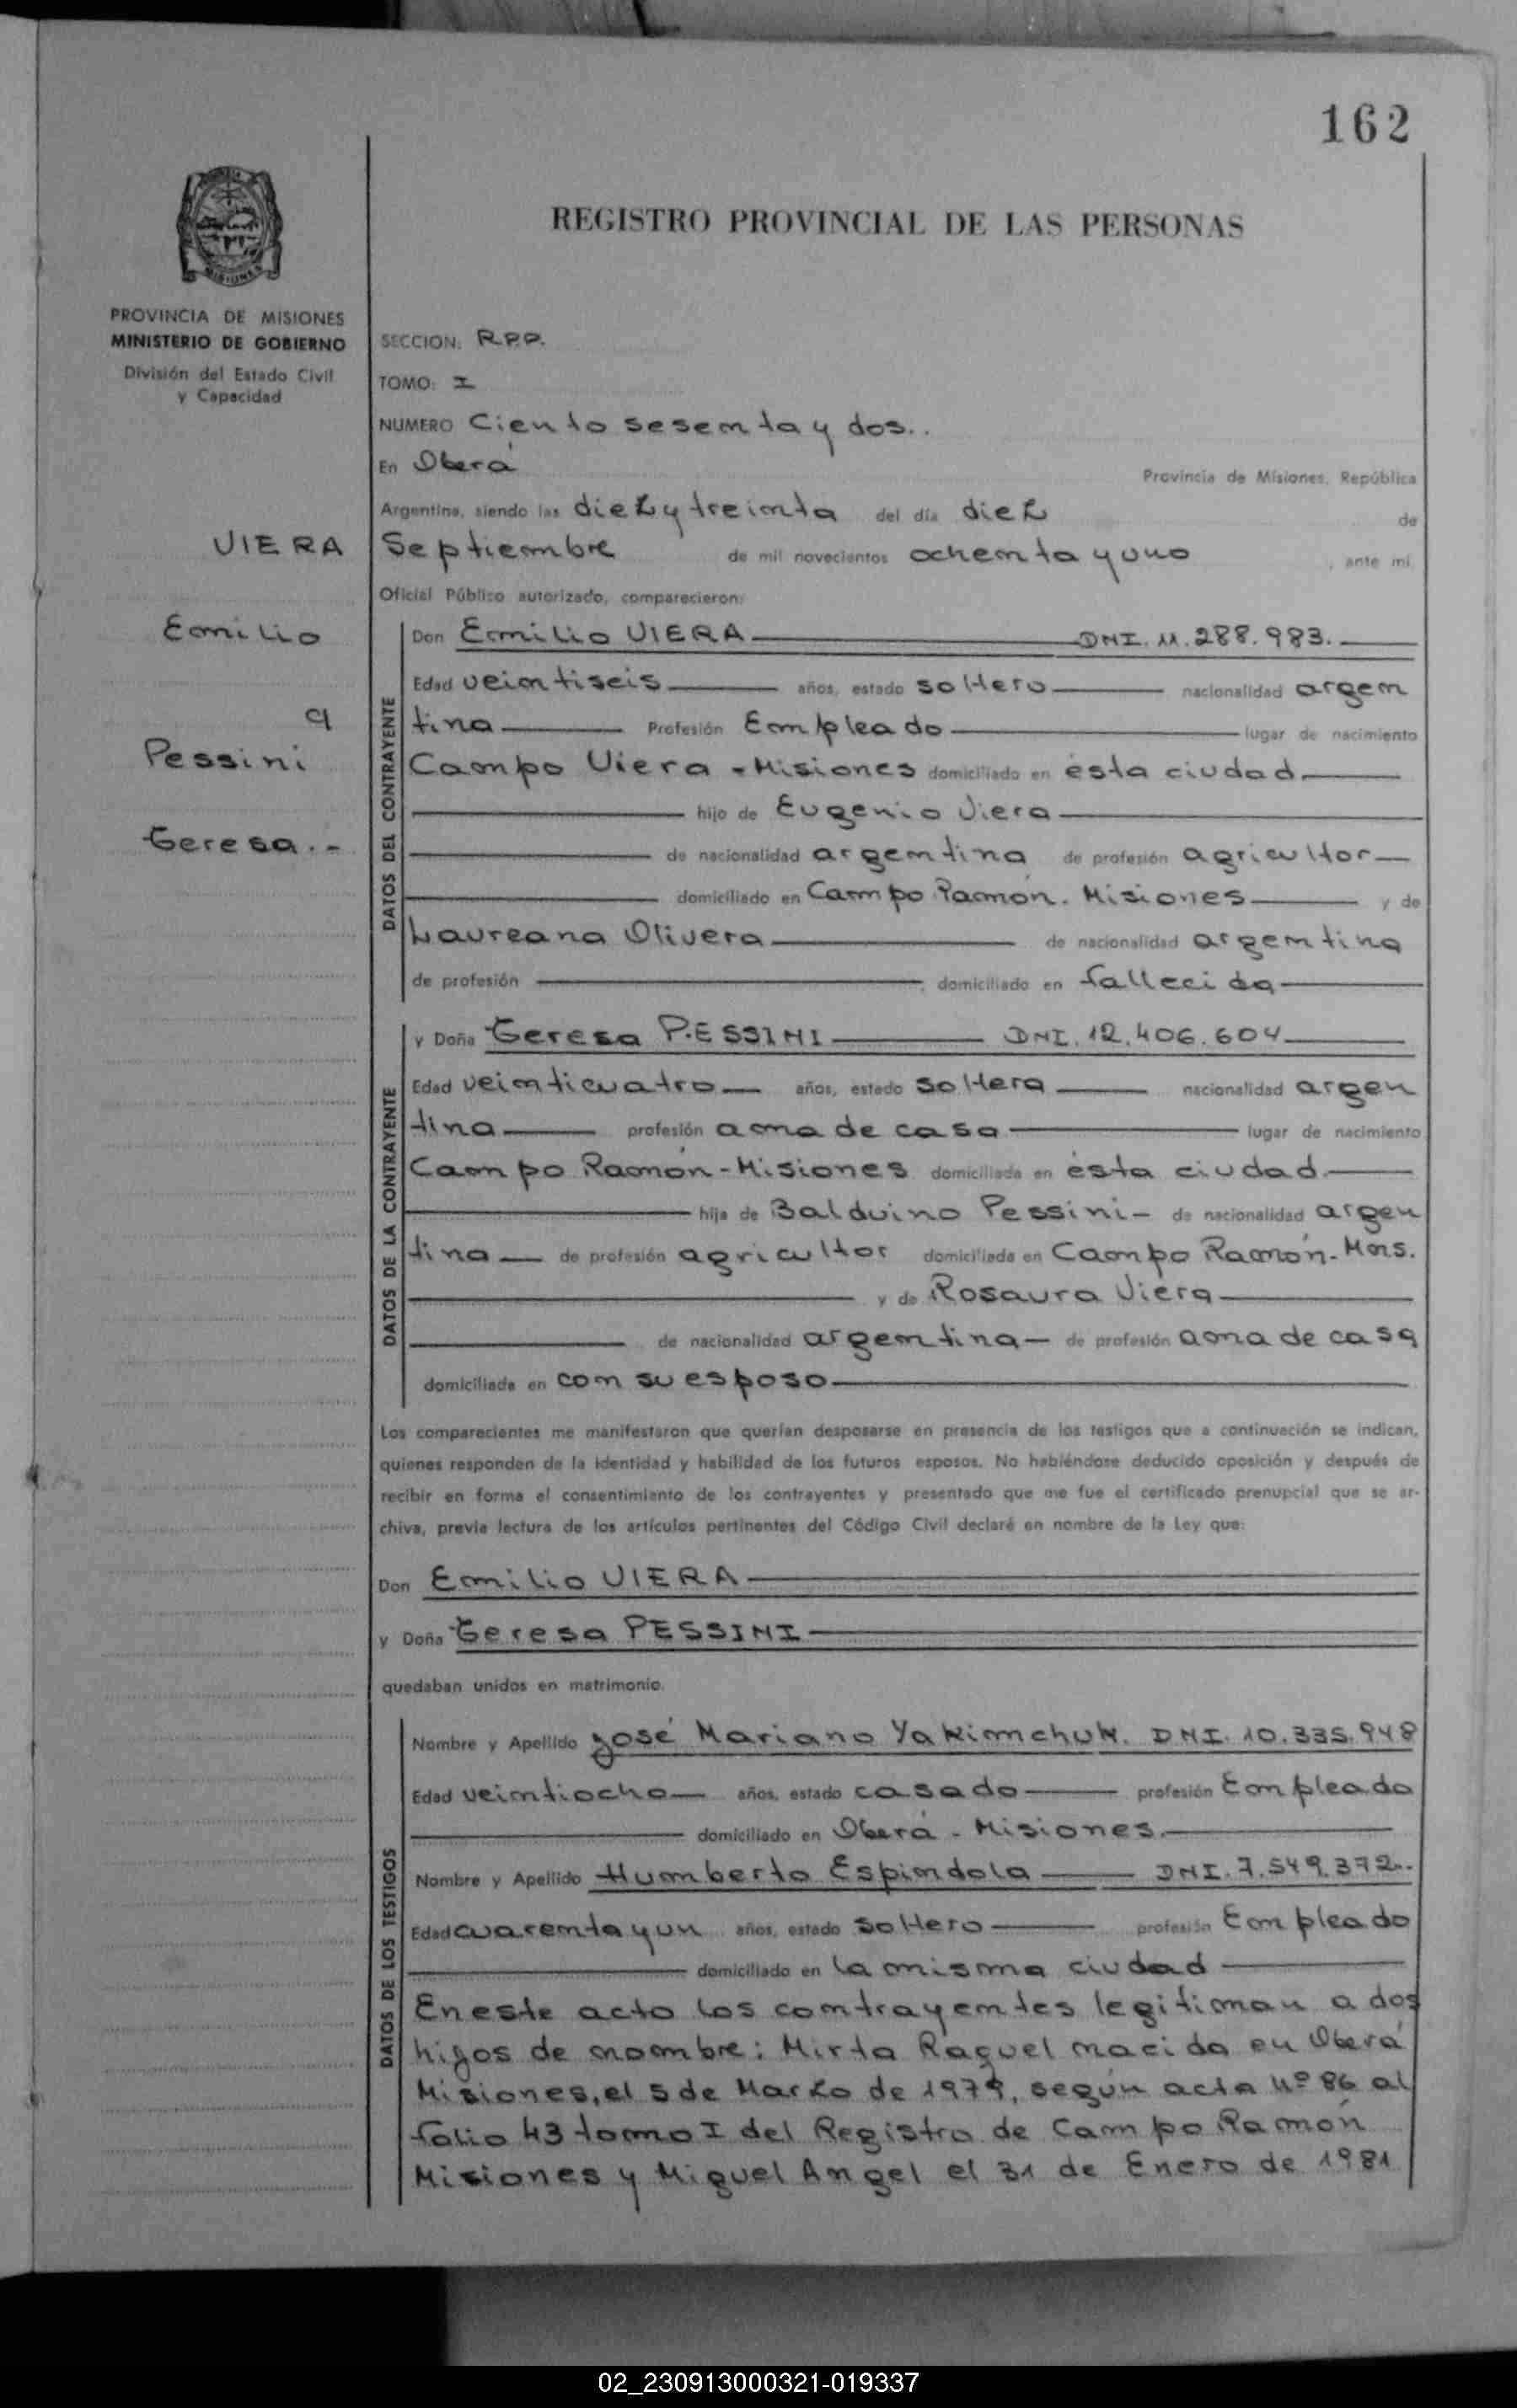 162
REGISTRO PROVINCIAL DE LAS PERSONAS
MISIONES
PROVINCIA DE MISIONES
MINISTERIO DE GOBIERNO
División del Estado Civil
y Capacidad
VIERA
Emilio
Pessini
Teresa.-
SECCION: R.P.P.
TOMO: I
NUMERO Ciento sesenta y dos..
En Oberá Provincia de Misiones, República
Argentina, siendo las diez y treinta del día diez de
Septiembre de mil novecientos ochenta y uno, ante mi
Oficial Público autorizado, comparecieron:
DATOS DEL CONTRAYENTE
Don Emilio VIERA DNI. 11.288.983.
Edad veintiseis años, estado soltero nacionalidad argen
tina Profesión Empleado lugar de nacimiento
Campo Viera - Misiones domiciliado en ésta ciudad.
hijo de Eugenio Viera
de nacionalidad argentina de profesión agricultor
domiciliado en Campo Ramón. Misiones y de
Laureana Olivera de nacionalidad argentina
de profesión domiciliado en fallecida
DATOS DE LA CONTRAYENTE
y Doña Teresa PESSINI DNI. 12.406.604
Edad veinticuatro años, estado soltera nacionalidad argen
tina profesión ama de casa lugar de nacimiento
Campo Ramón - Misiones domiciliada en ésta ciudad.
hija de Balduino Pessini - de nacionalidad argen
tina de profesión agricultor domiciliada en Campo Ramón - Mnes.
y de Rosaura Viera
de nacionalidad argentina de profesión ama de casa
domiciliada en con su esposo
Los comparecientes me manifestaron que querían desposarse en presencia de los testigos que a continuación se indican,
quienes responden de la identidad y habilidad de los futuros esposos. No habiéndose deducido oposición y después de
recibir en forma el consentimiento de los contrayentes y presentado que me fue el certificado prenupcial que se ar-
chiva, previa lectura de los artículos pertinentes del Código Civil declaré en nombre de la Ley que:
Don Emilio VIERA
y Doña Teresa PESSINI
quedaban unidos en matrimonio.
DATOS DE LOS TESTIGOS
Nombre y Apellido José Mariano Yakimchuk. DNI. 10.335.948
Edad veintiocho años, estado casado profesión Empleado
domiciliado en Oberá - Misiones.
Nombre y Apellido Humberto Espindola DNI. 7.549.372..
Edad cuarenta y un años, estado soltero profesión Empleado
domiciliado en la misma ciudad
En este acto los contrayentes legitiman a dos
hijos de nombre: Mirta Raquel nacida en Oberá
Misiones, el 5 de Marzo de 1979, según acta Nº 86 al
folio 43 tomo I del Registro de Campo Ramón
Misiones y Miguel Angel el 31 de Enero de 1981
02_230913000321-019337